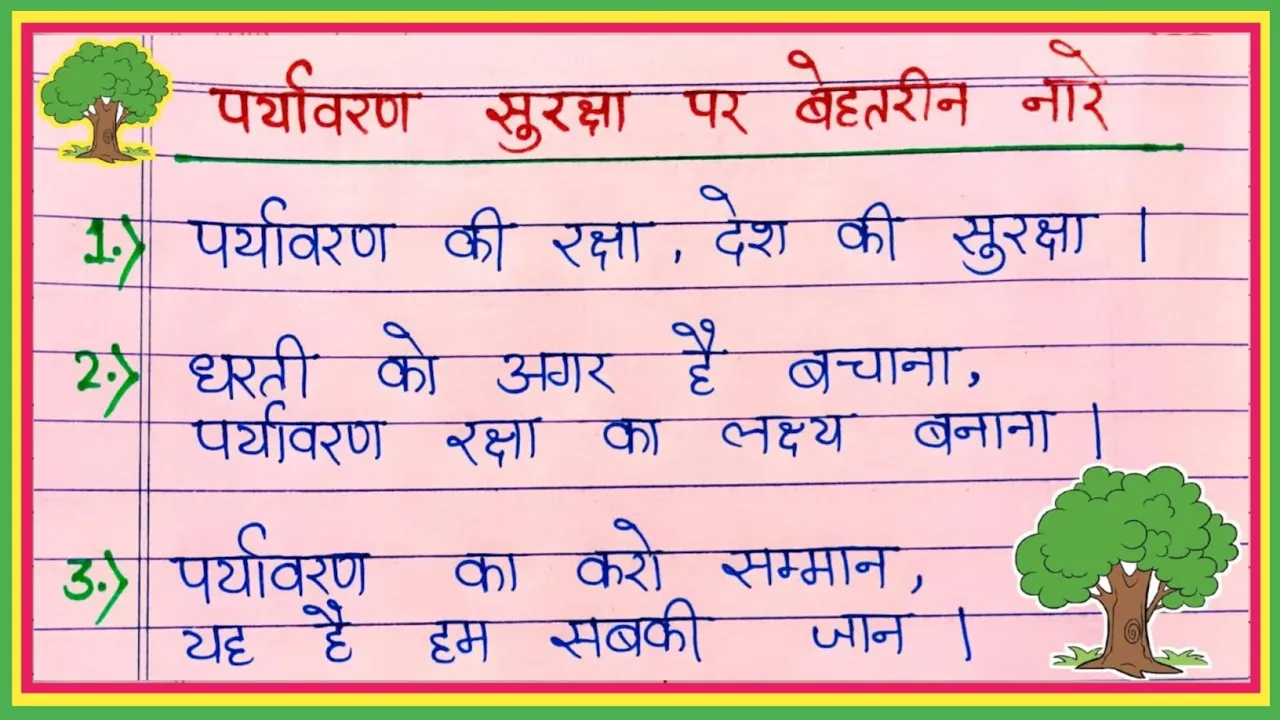 पर्यावरण सुरक्षा पर बेहतरीन नारे
1.) पर्यावरण की रक्षा, देश की सुरक्षा |
2.) धरती को अगर है बचाना,
पर्यावरण रक्षा का लक्ष्य बनाना |
3.) पर्यावरण का करो सम्मान,
यह है हम सबकी जान |